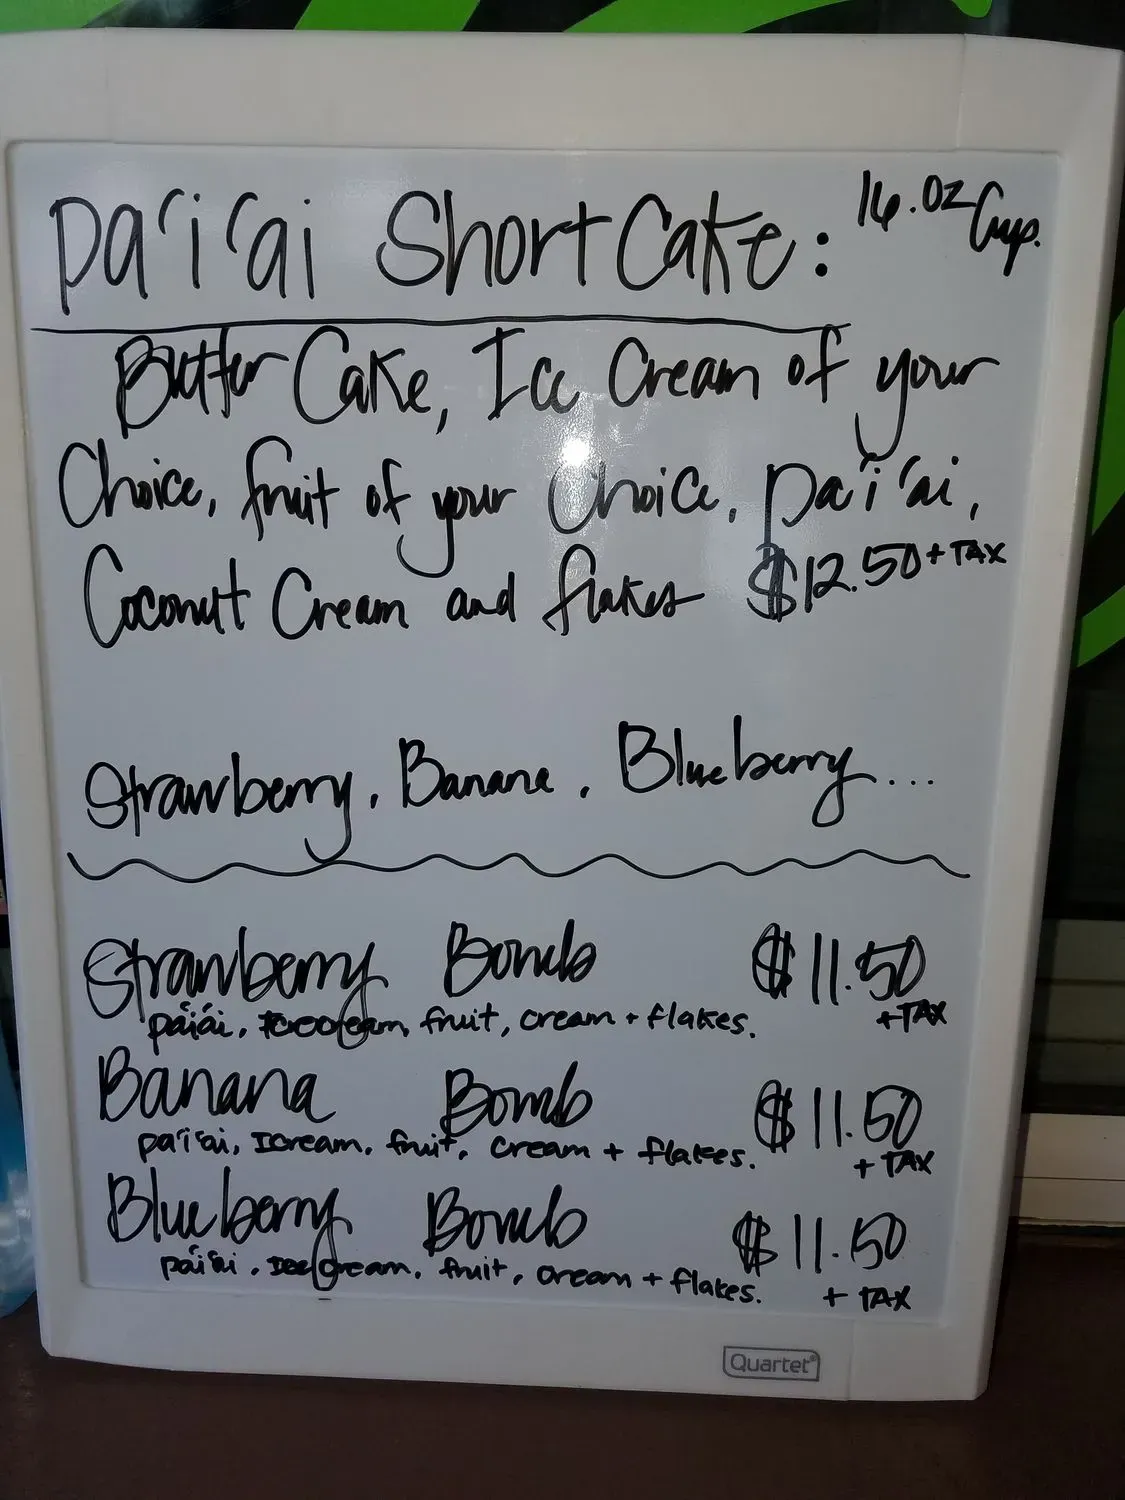 Pa'i'ai ShortCake: 16.oz Cup.
Butter Cake, Ice Cream of your
Choice, fruit of your Choice, pa'i'ai,
Coconut Cream and flakes $12.50 + TAX
Strawberry, Banana, Blueberry...
Strawberry Bomb $11.50
pa'i'ai, Icecream, fruit, cream + flakes. + TAX
Banana Bomb $11.50
pa'i'ai, Icream, fruit, cream + flakes. + TAX
Blueberry Bomb $11.50
pa'i'ai, Icecream, fruit, cream + flakes. + TAX
Quartet®